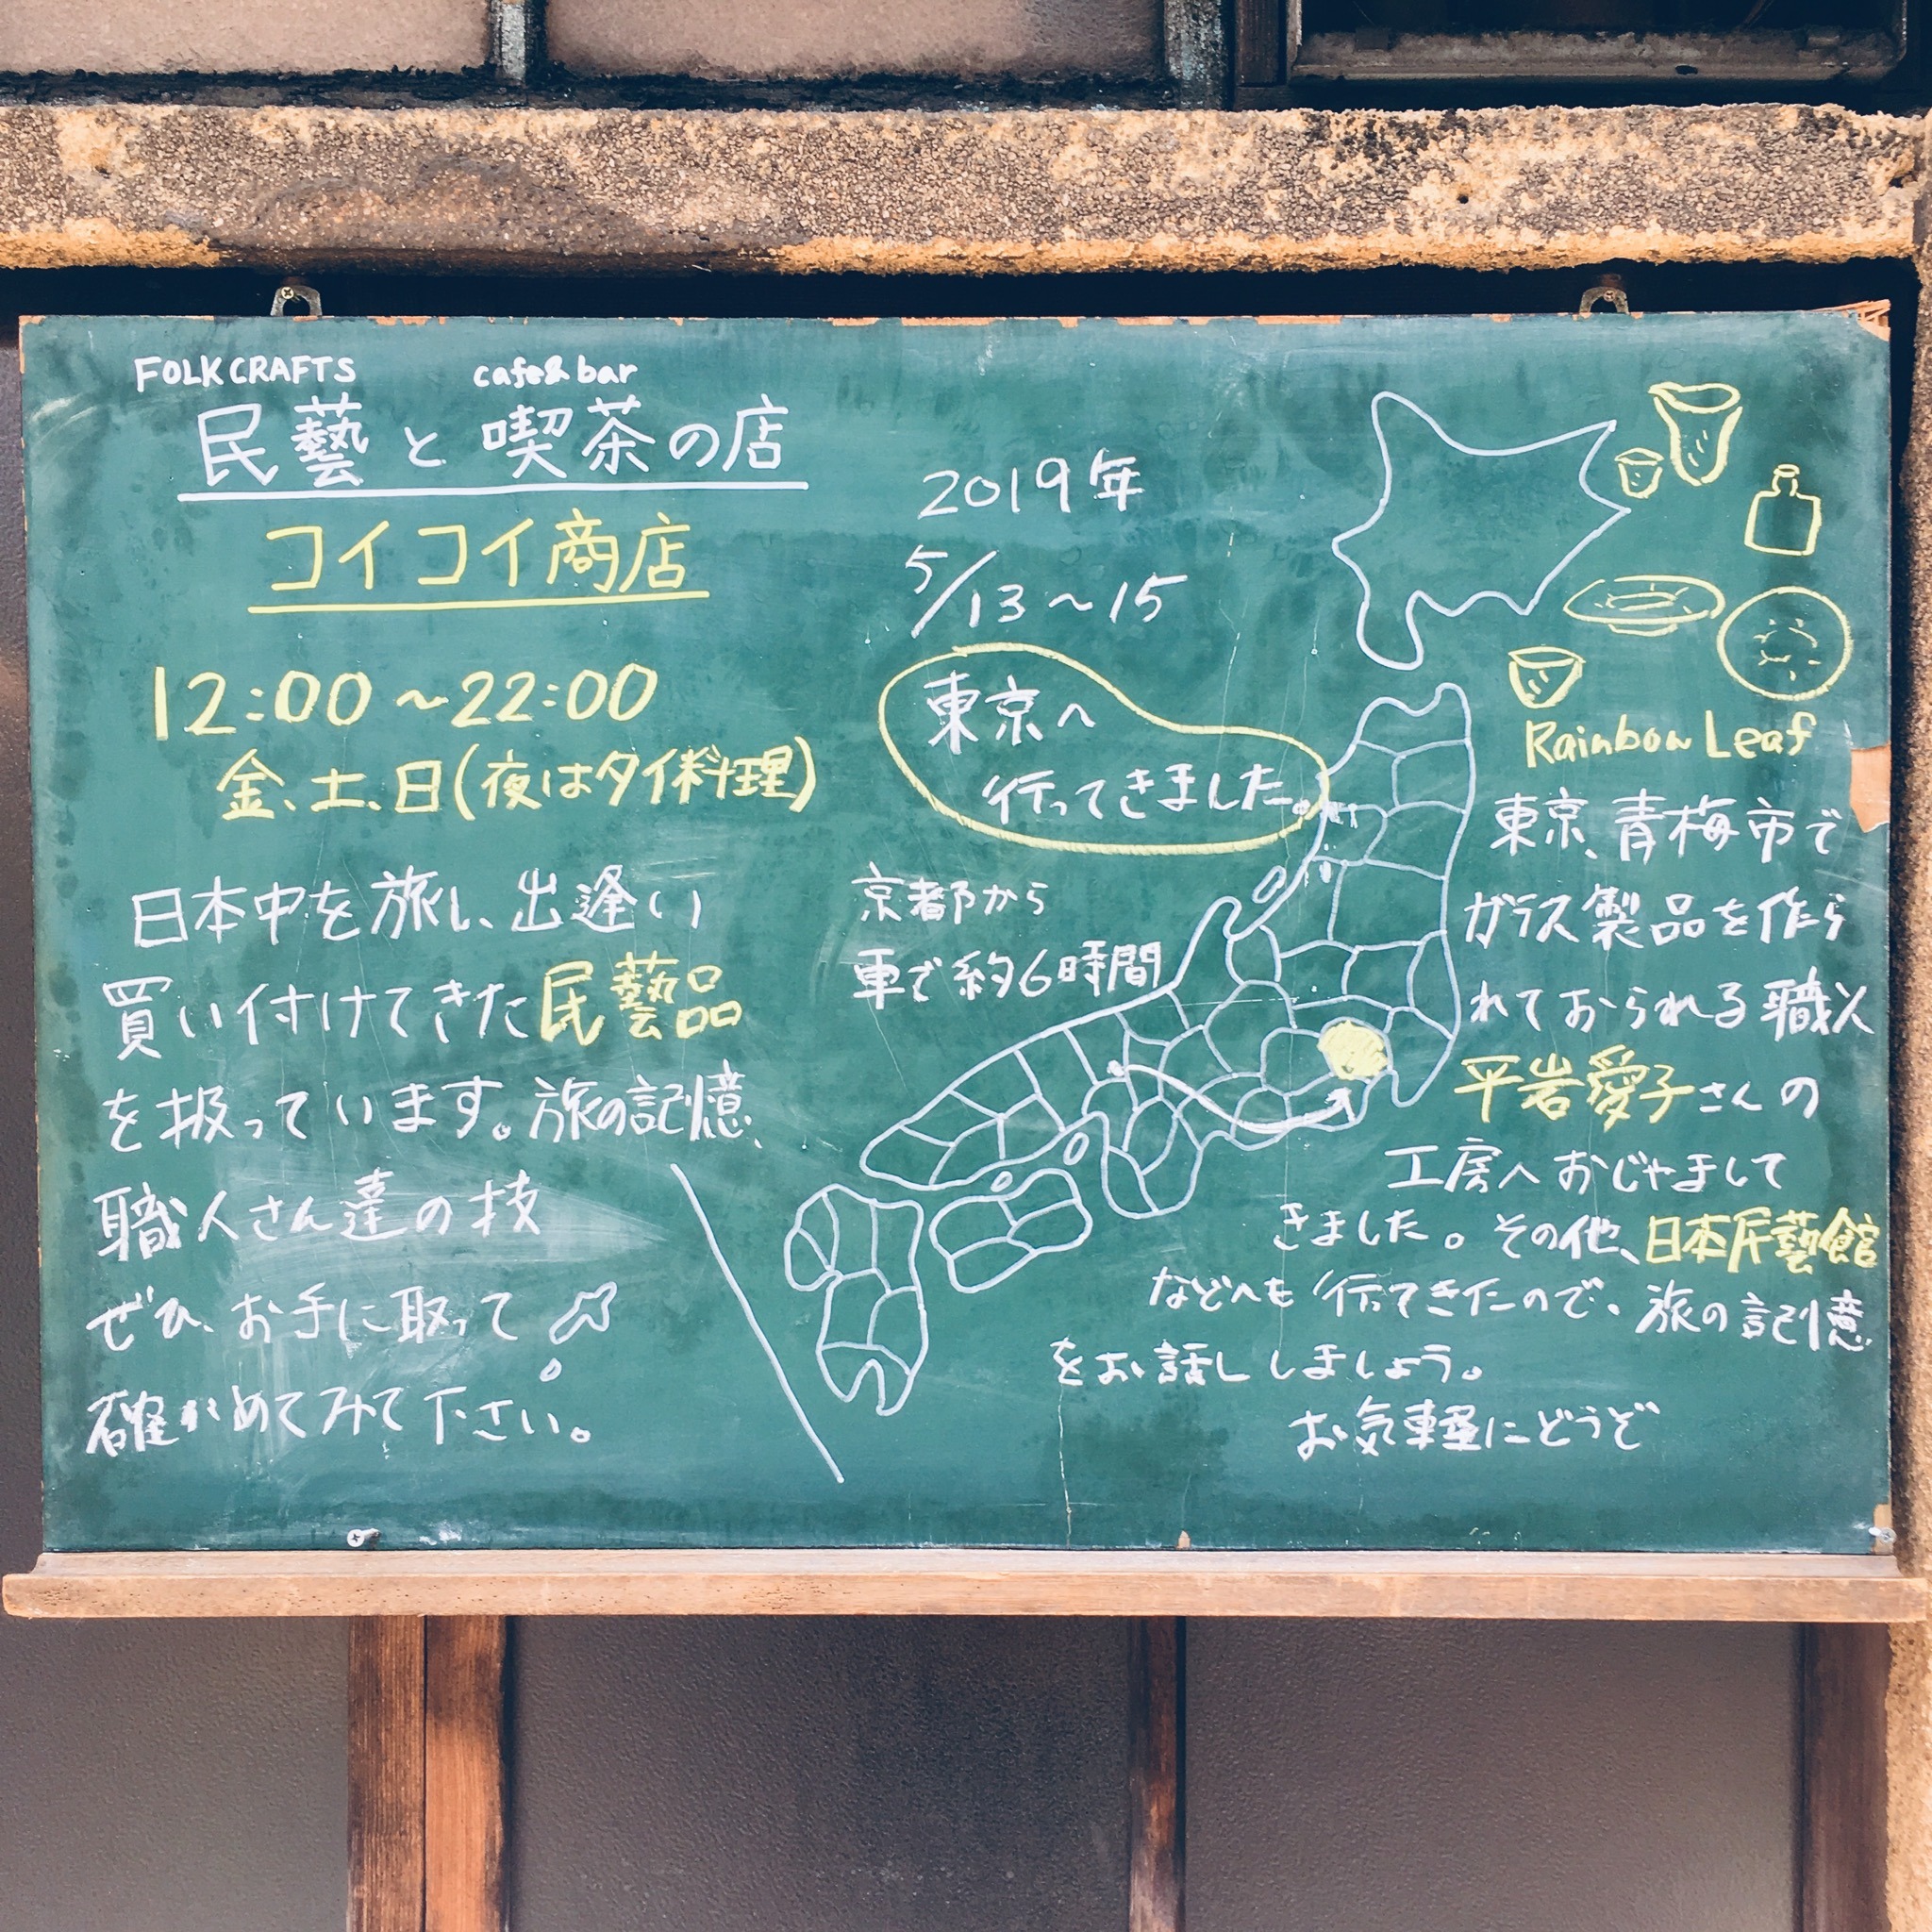 FOLKCRAFTS cafe&bar
民藝と喫茶の店
コイコイ商店
12:00〜22:00
金、土、日(夜はタイ料理)
日本中を旅し、出逢い
買い付けてきた民藝品
を扱っています。旅の記憶、
職人さん達の技
ぜひ、お手に取って
確かめてみて下さい。
2019年
5/13〜15
東京へ
行ってきました。
京都から
車で約6時間
Rainbow Leaf
東京、青梅市で
ガラス製品を作ら
れておられる職人
平岩愛子さんの
工房へおじゃまして
きました。その他、日本民藝館
などへも行ってきたので、旅の記憶
をお話ししましょう。
お気軽にどうぞ